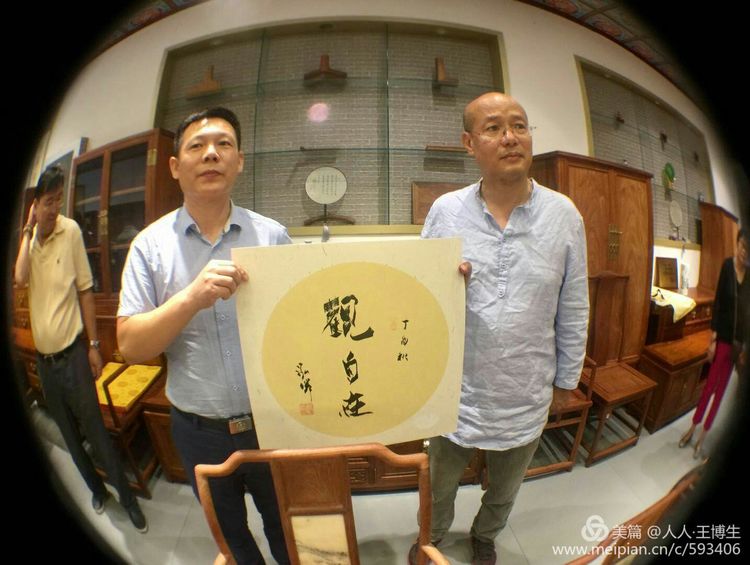 丁酉秋
觀自在
美篇 @人人·王博生
www.meipian.cn/c/593406